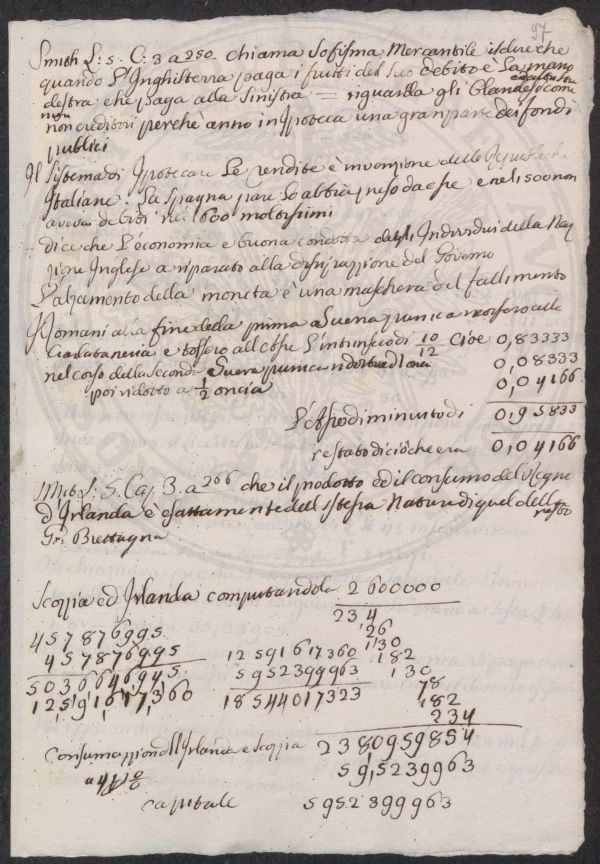 97
Smith L: 5. C: 3 a 250. chiama Sofisma Mercantile il dire che
quando L'Inghilterra paga i frutti del suo debito è La mano
destra che paga alla sinistra = riguarda gli Olandesi come
non creditori perchè anno in Ipoteca una gran parte dei fondi
publici
Il Sistema di Ipotecare Le rendite è invenzione delle Republiche
Italiane. La Spagna pare Lo abbia preso da esse e nel 1500 non
aveva debiti nel 1600 moltissimi
dice che L'economia e buona condotta degli Individui della Na
zione Inglese a riparato alla dissipazione del Governo
L'alzamento della moneta è una maschera del fallimento
Romani alla fine della prima Guerra punica
e tolsero all'Asse L'intrinseco di 10/12 Cioè 0,83333
nel corso della Seconda Guerra punica ridotto ad 1 oncia 0,08333
poi ridotto a 1/2 oncia 0,04166
L'Asse diminuito di 0,95833
restato di ciò che era 0,04166
Smit L: 5. Cap. 3. a 266 che il prodotto ed il consumo del Regno
d'Irlanda è esattamente dell'istessa Natura di quel della
resto
Gr: Brettagna
Scozia ed Irlanda computandola 2600000
234
457876995 26
457876995 12591617360 130
5036646945 5952399963 182
12591617360 18544017323 130
78
182
234
Consumazione d'Irlanda e Scozia 2380959854
595239963
capitale 5952399963